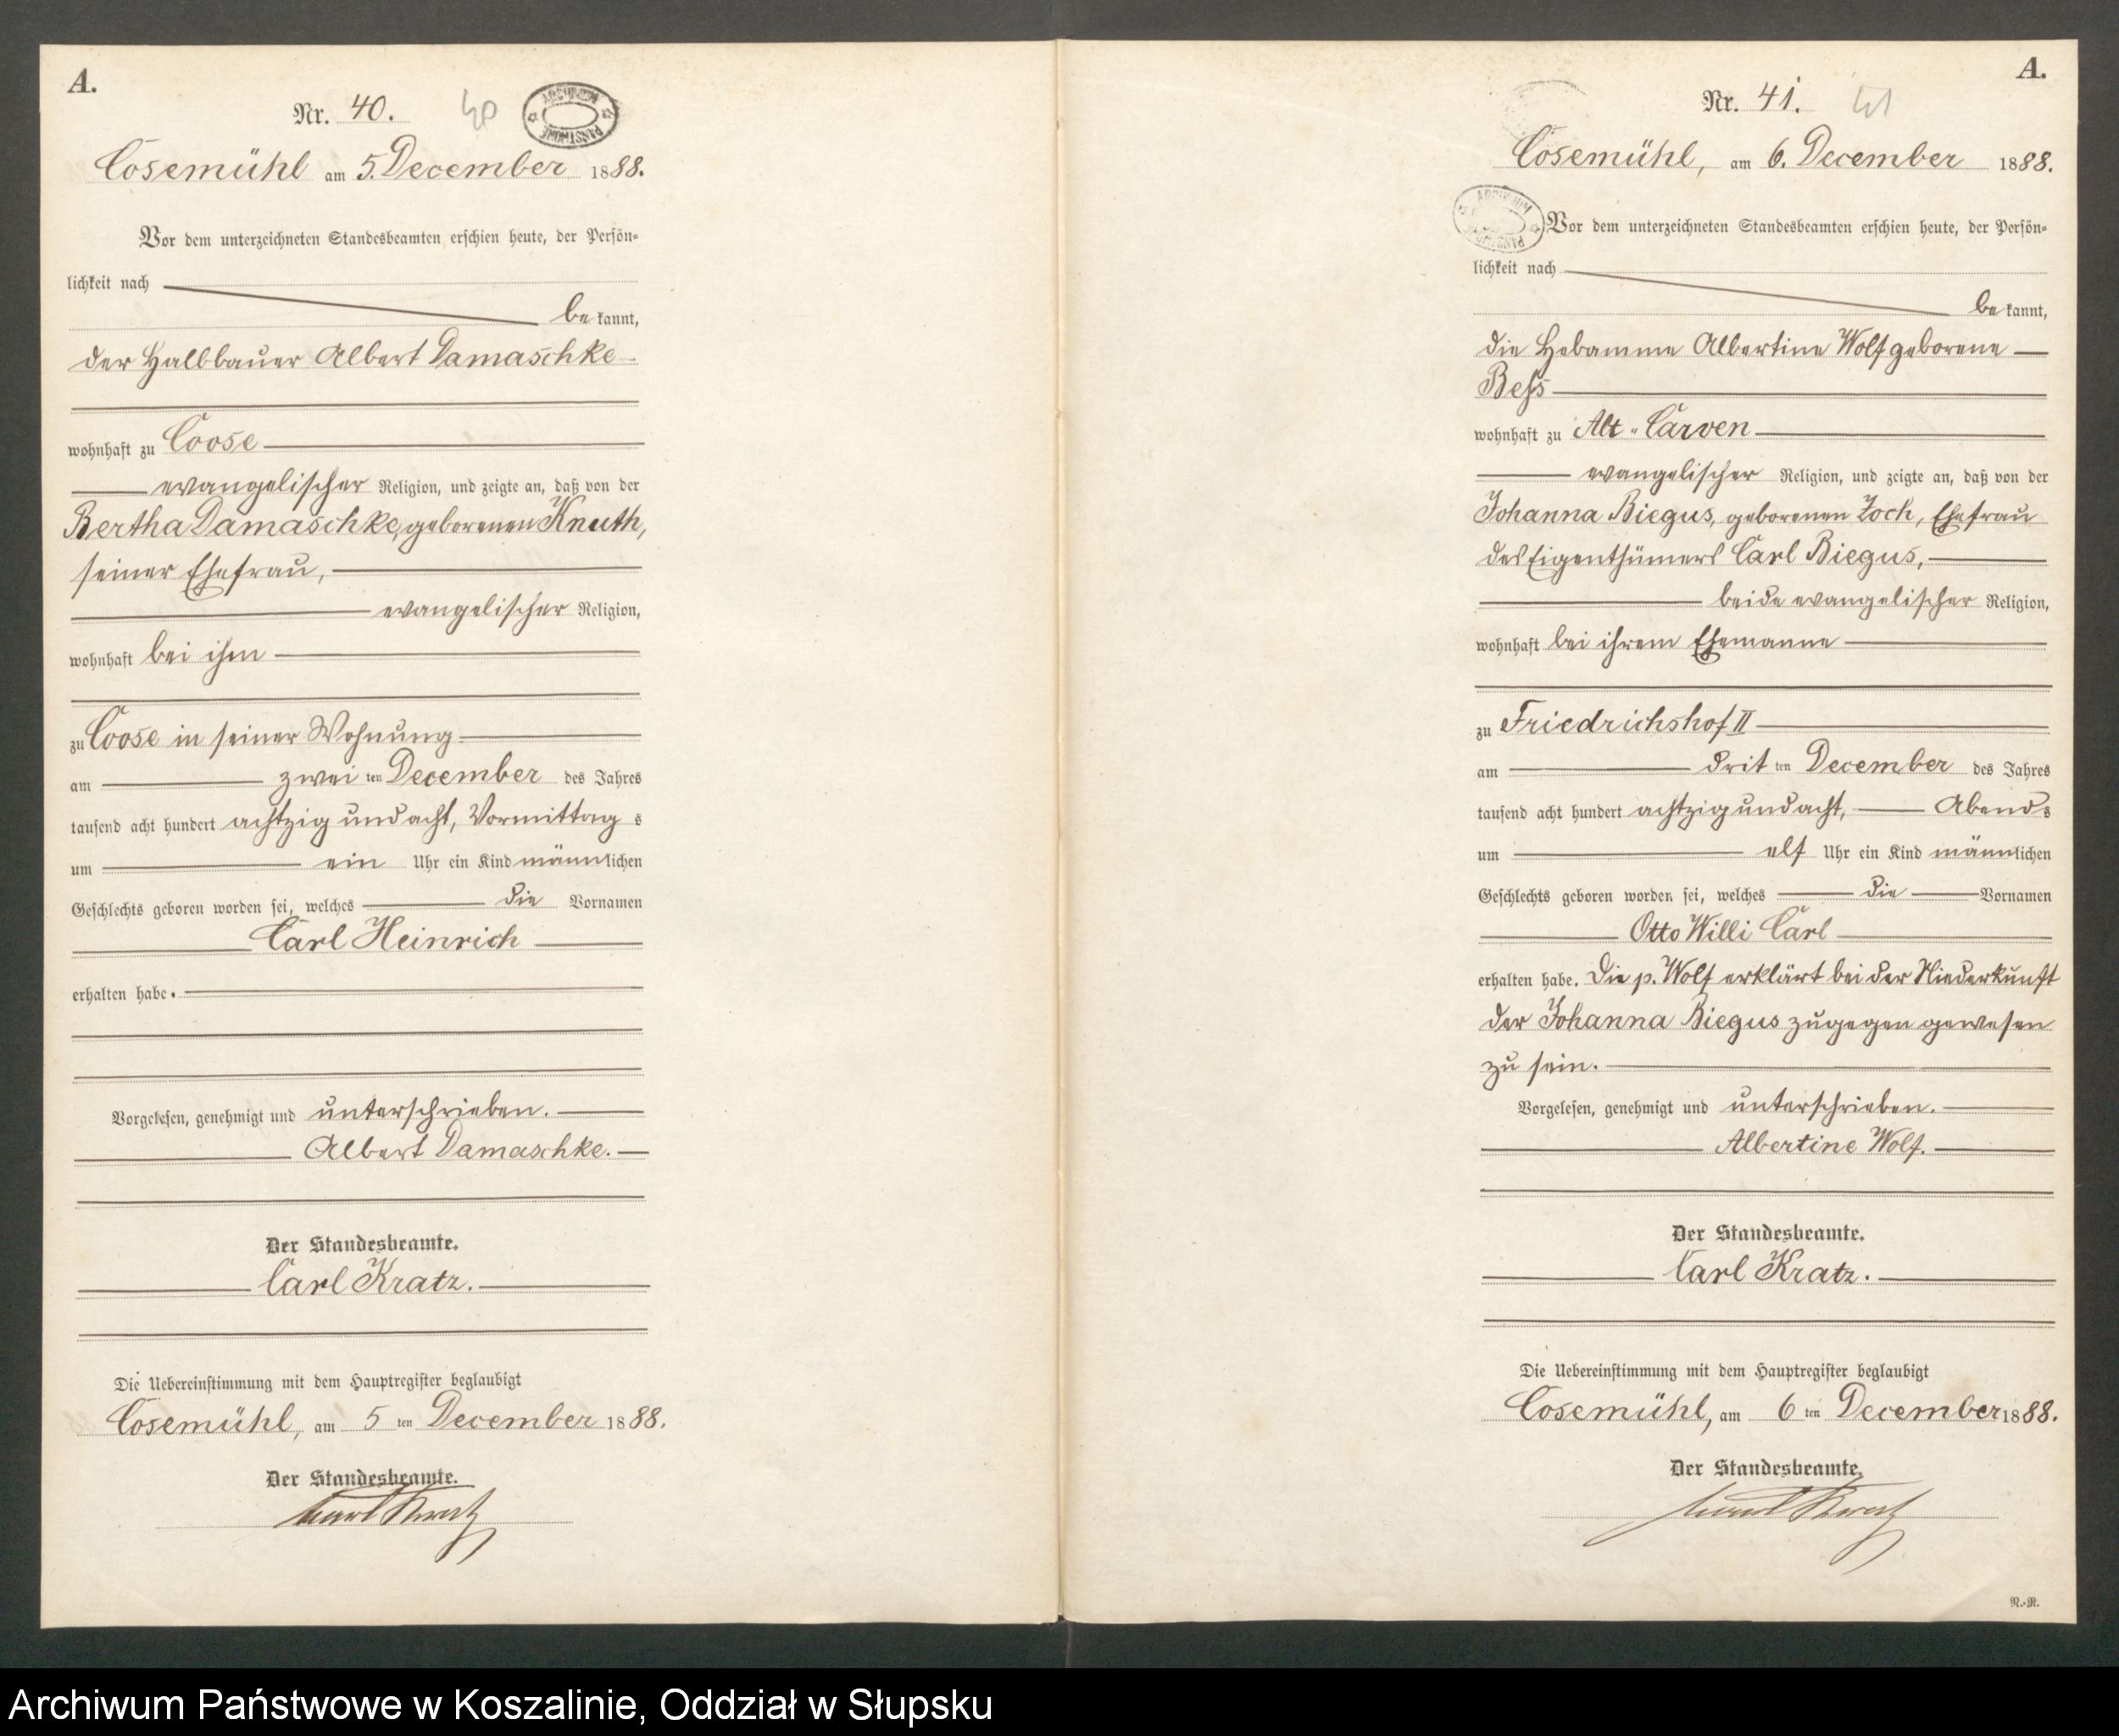 A.
Nr. 40. 40
ARCHIWUM PAŃSTWOWE
Cosemühl am 5. December 1888.
Vor dem unterzeichneten Standesbeamten erschien heute, der Persön-
lichkeit nach
bekannt,
der Halbbauer Albert Damaschke
wohnhaft zu Coose
evangelischer Religion, und zeigte an, daß von der
Bertha Damaschke, geborenen Knuth,
seiner Ehefrau,
evangelischer Religion,
wohnhaft bei ihm
zu Coose in seiner Wohnung
am zweiten December des Jahres
tausend acht hundert achtzig und acht, Vormittags
um ein Uhr ein Kind männlichen
Geschlechts geboren worden sei, welches die Vornamen
Carl Heinrich
erhalten habe.
Vorgelesen, genehmigt und unterschrieben.
Albert Damaschke.
Der Standesbeamte.
Carl Kratz.
Die Uebereinstimmung mit dem Hauptregister beglaubigt
Cosemühl, am 5ten December 1888.
Der Standesbeamte.
Carl Kratz
A.
Nr. 41. 41
Cosemühl, am 6. December 1888.
ARCHIWUM PAŃSTWOWE
Vor dem unterzeichneten Standesbeamten erschien heute, der Persön-
lichkeit nach
bekannt,
die Hebamme Albertine Wolf geborene
Beß
wohnhaft zu Alt-Carven
evangelischer Religion, und zeigte an, daß von der
Johanna Biegus, geborenen Zoch, Ehefrau
des Eigenthümers Carl Biegus,
beide evangelischer Religion,
wohnhaft bei ihrem Ehemanne
zu Friedrichshof II
am dritten December des Jahres
tausend acht hundert achtzig und acht, Abends
um elf Uhr ein Kind männlichen
Geschlechts geboren worden sei, welches die Vornamen
Otto Willi Carl
erhalten habe. Die p. Wolf erklärt bei der Niederkunft
der Johanna Biegus zugegen gewesen
zu sein.
Vorgelesen, genehmigt und unterschrieben.
Albertine Wolf.
Der Standesbeamte.
Carl Kratz.
Die Uebereinstimmung mit dem Hauptregister beglaubigt
Cosemühl, am 6ten December 1888.
Der Standesbeamte.
Carl Kratz
R.-R.
Archiwum Państwowe w Koszalinie, Oddział w Słupsku